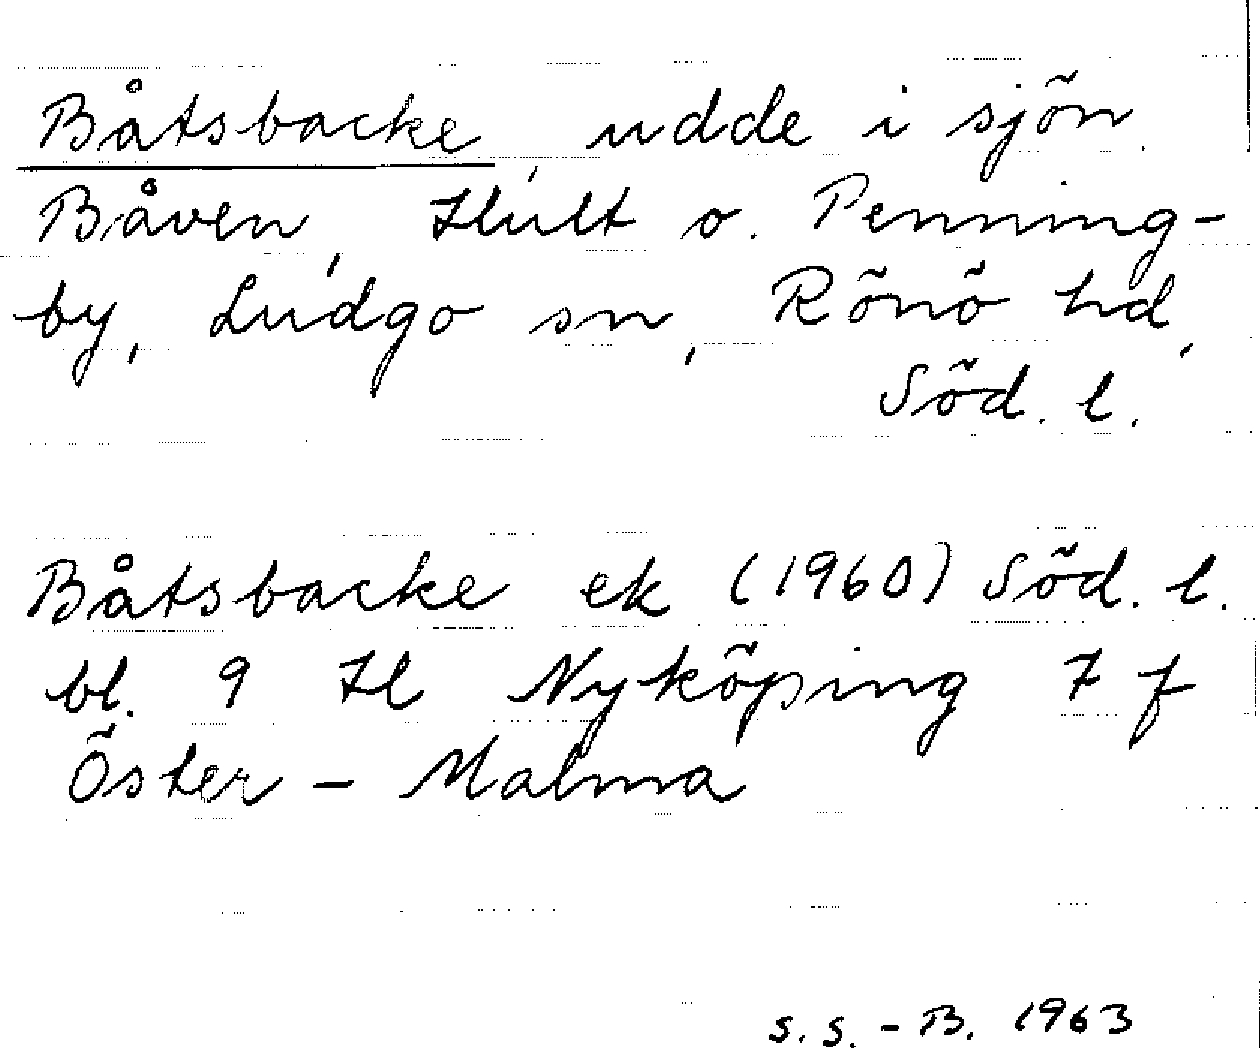 Båtsbacke, udde i sjön
Båven, Hult o. Penning-
by, Ludgo sn, Rönö hd,
Söd. l.
Båtsbacke ek (1960) Söd. l.
bl. 9 H l Nyköping 7 f
Öster - Malma
S. S. - B. 1963